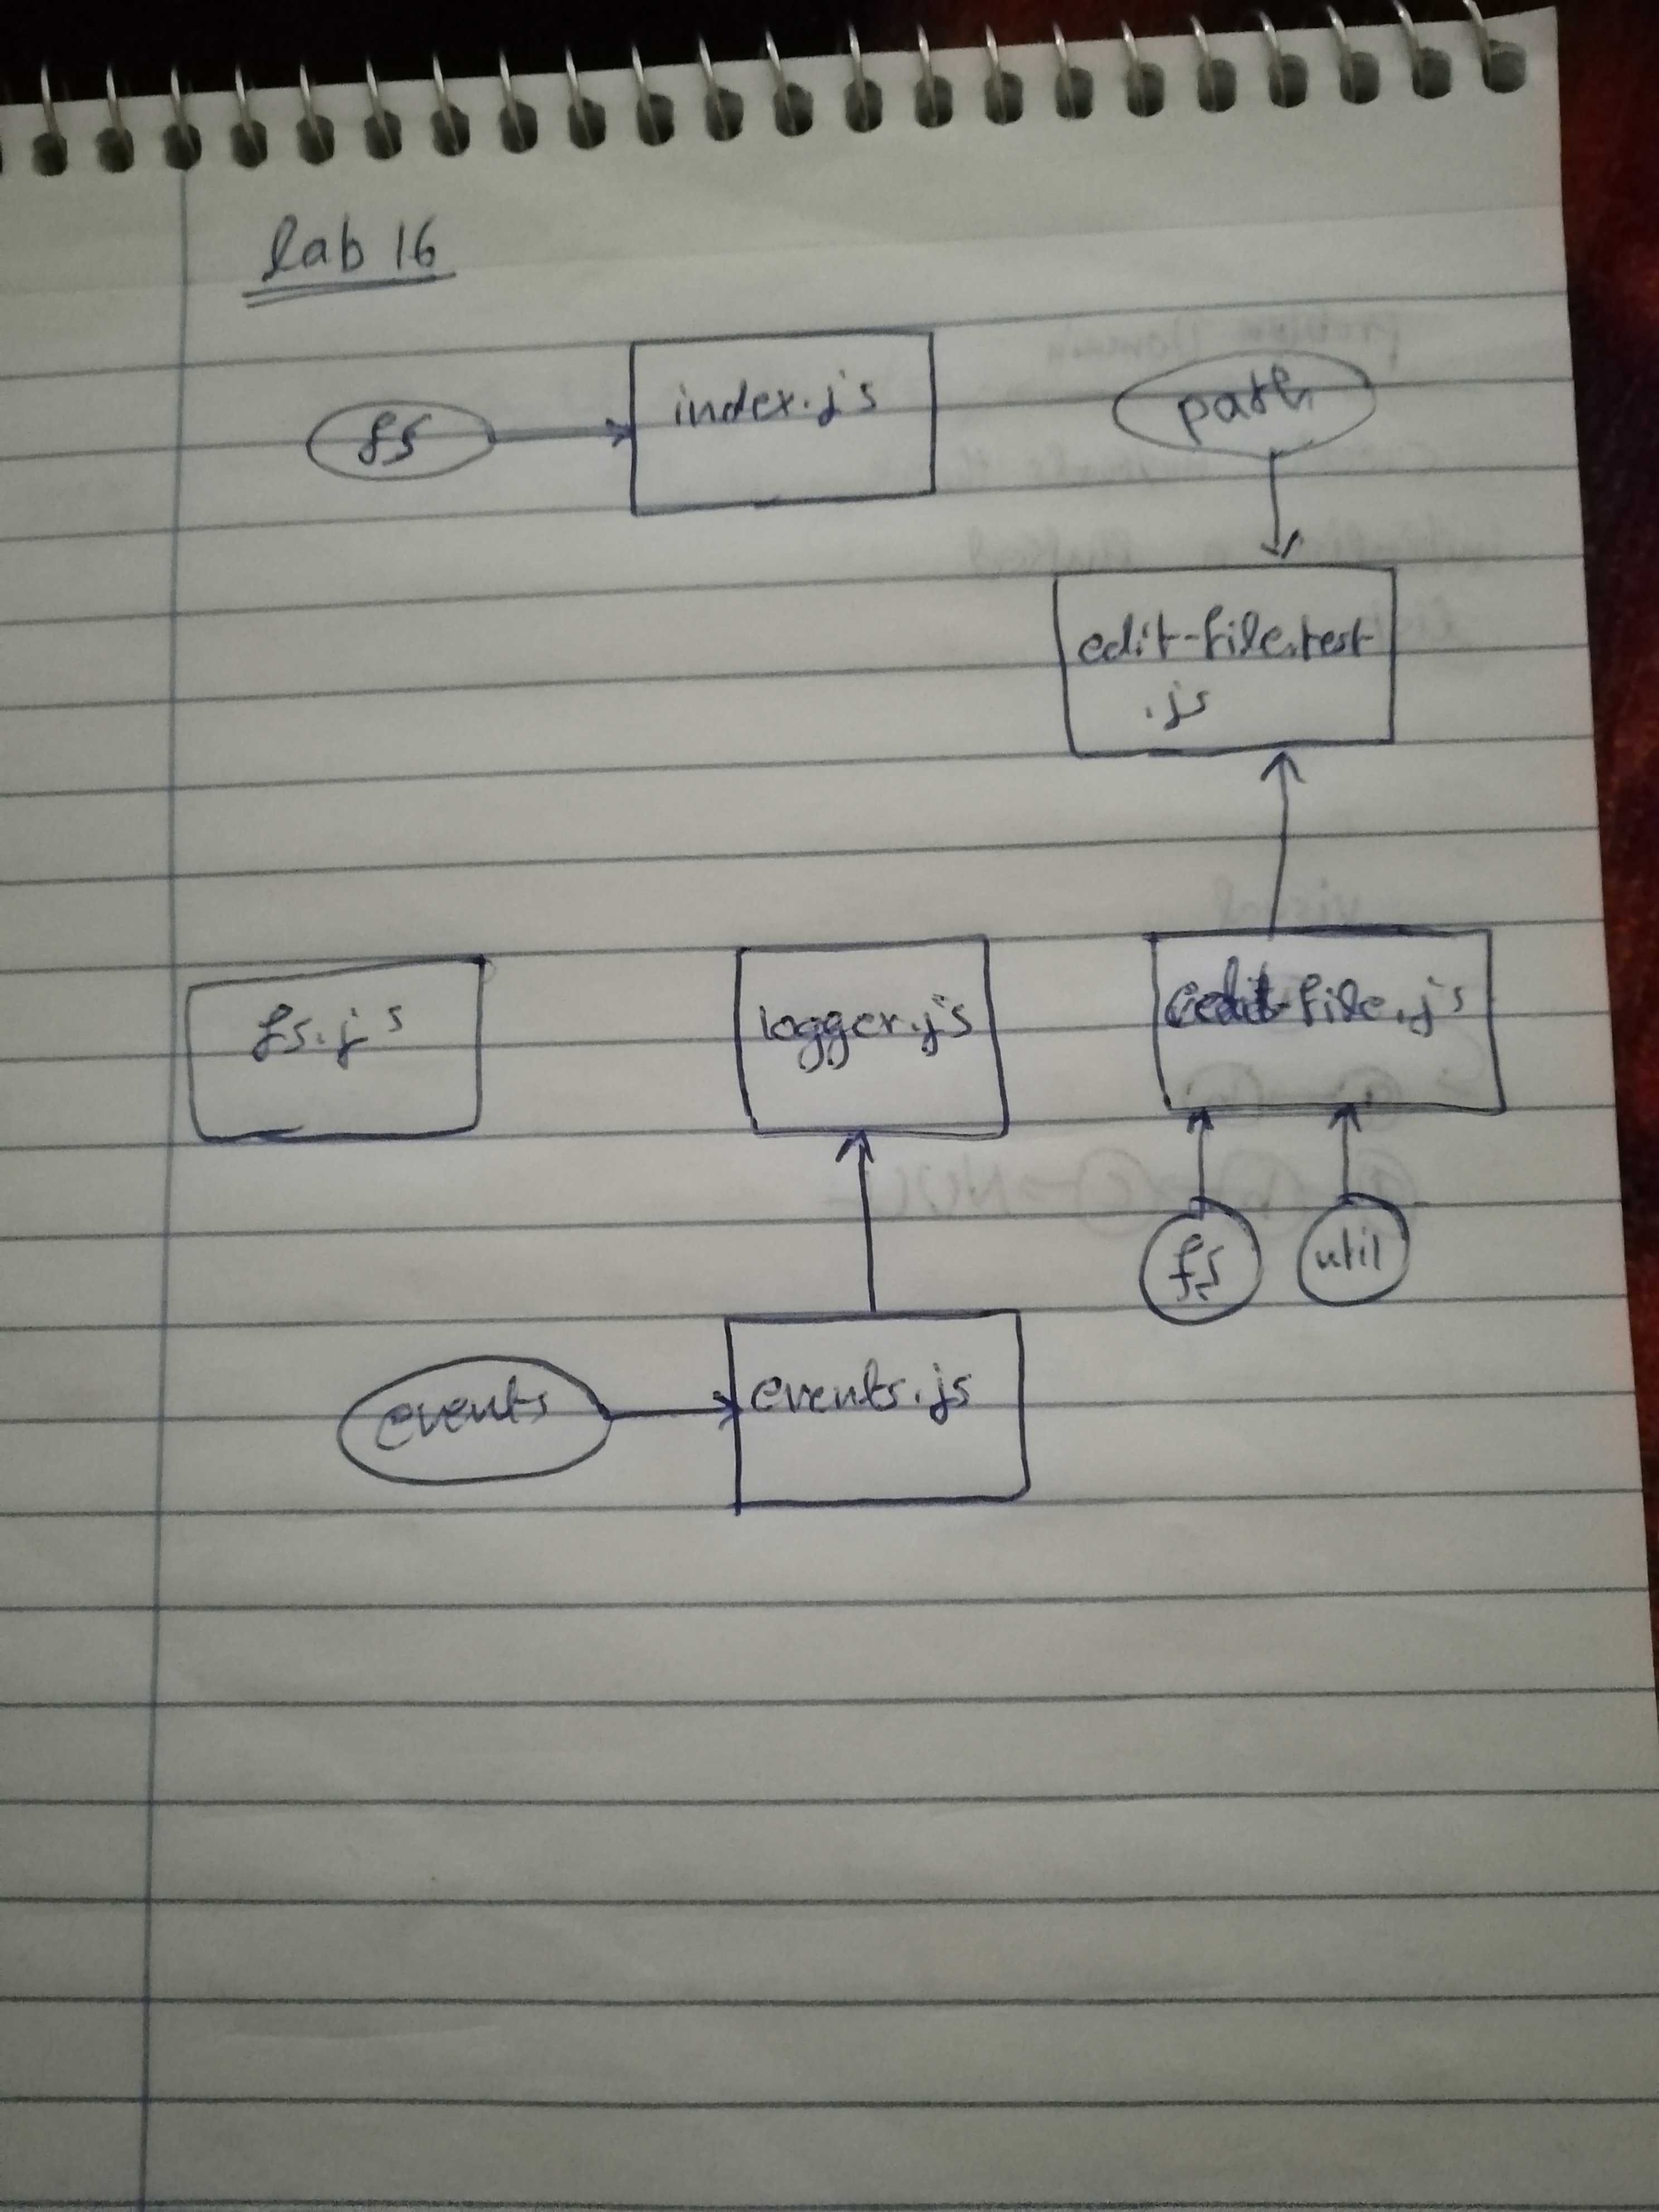 lab 16
fs
index.js
path
edit-file.test
.js
fs.js
logger.js
edit-file.js
fs
util
events
events.js